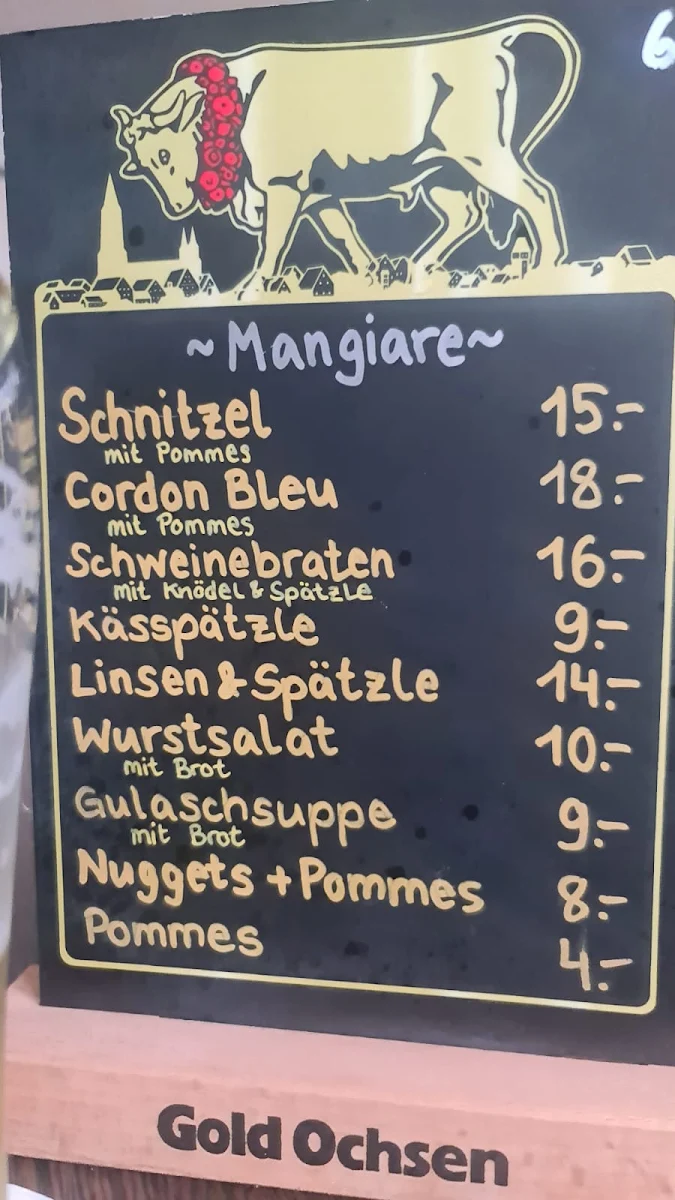 6
~Mangiare~
Schnitzel 15.-
mit Pommes
Cordon Bleu 18.-
mit Pommes
Schweinebraten 16.-
mit Knödel & Spätzle
Kässpätzle 9.-
Linsen & Spätzle 14.-
Wurstsalat 10.-
mit Brot
Gulaschsuppe 9.-
mit Brot
Nuggets + Pommes 8.-
Pommes 4.-
Gold Ochsen